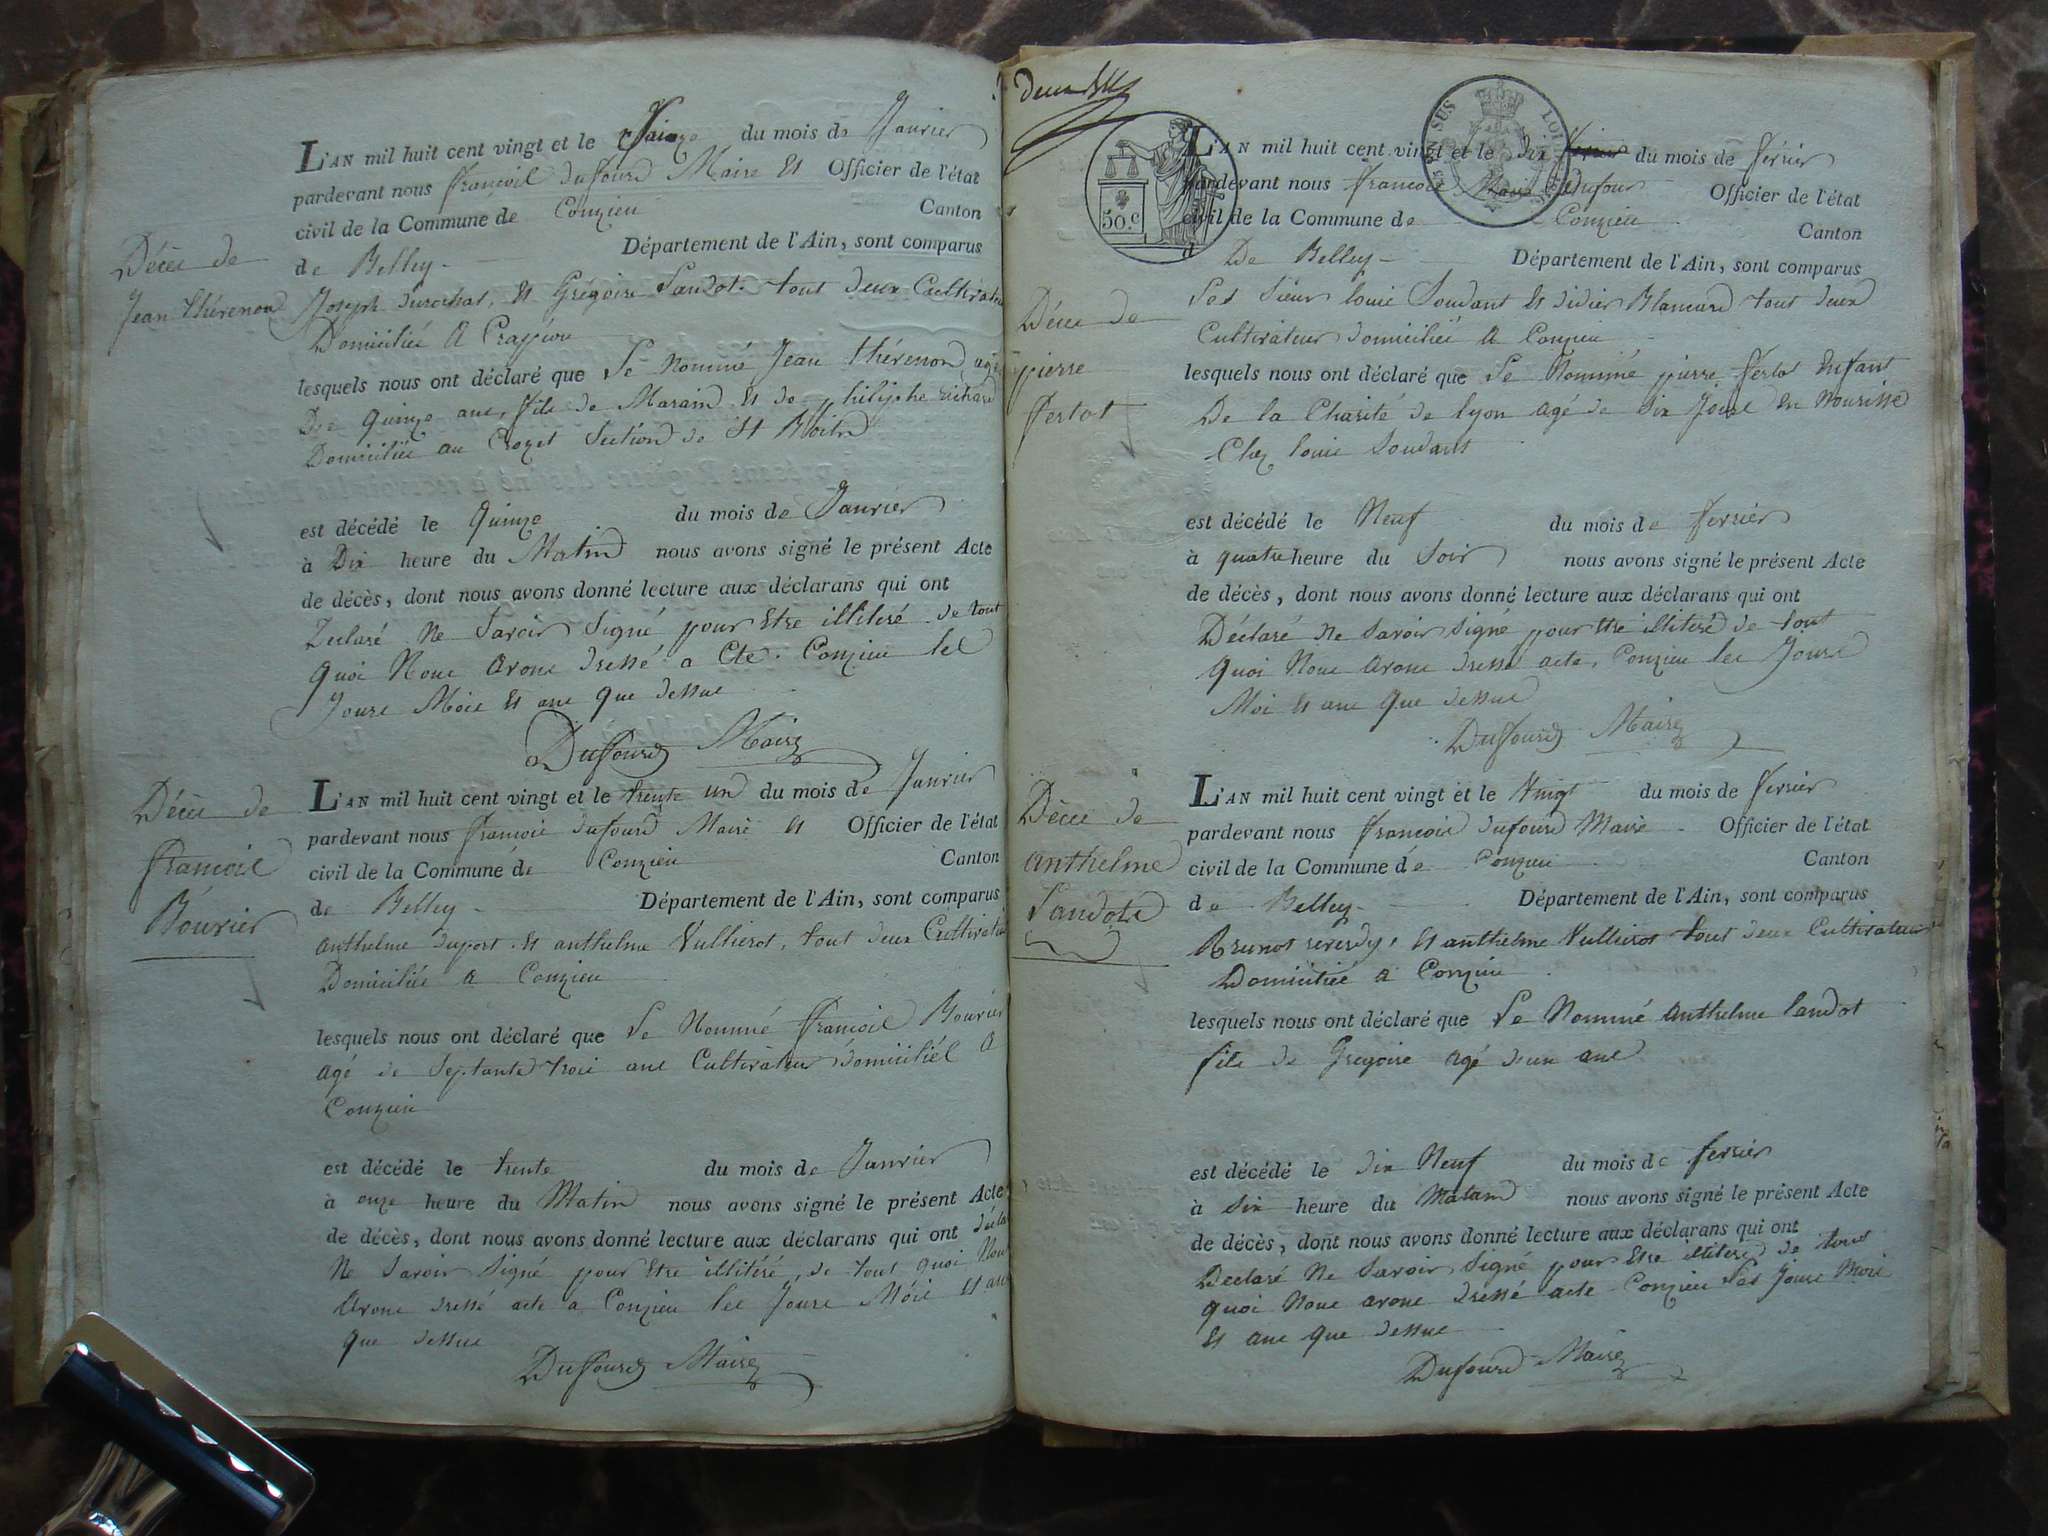 L'AN mil huit cent vingt et le du mois de Janvier
pardevant nous francois dufourd Maire et Officier de l'état
civil de la Commune de Conzieu Canton
de Belley Département de l'Ain, sont comparus
Décès de
Jean thérenond
Joseph durochat, et Grégoire Landot tout deux Cultivateu
Domicilié a
lesquels nous ont déclaré que Le Nommé Jean thérenond agé
De quinze ans, fils de et de philiphe
Domicilié au Crozet Section de St
est décédé le quinze du mois de Janvier
à Dix heure du Matin nous avons signé le présent Acte
de décès, dont nous avons donné lecture aux déclarans qui ont
Declaré Ne Savoir Signé pour Etre illiteré de tout
quoi Nous avons dressé a Cte. Conzieu les
Jours Mois et ans que dessus
Duffourd Maire
Décès de
francois
Bouvier
L'AN mil huit cent vingt et le trente un du mois de Janvier
pardevant nous francois dufourd Maire et Officier de l'état
civil de la Commune de Conzieu Canton
de Belley Département de l'Ain, sont comparus
anthelme duport et anthelme Vullierot, tout deux Cultivateu
Domiciliés a Conzieu
lesquels nous ont déclaré que Le Nommé francois Bouvier
agé de Septante trois ans Cultivateur domiciliél a
Conzieu
est décédé le trente du mois de Janvier
à onze heure du Matin nous avons signé le présent Acte
de décès, dont nous avons donné lecture aux déclarans qui ont décla
Ne Savoir Signé pour Etre illitéré, de tout quoi Nou
avons dressé acte a Conzieu les Jours Mois et ans
que dessus
Duffourd Maire
50.c
L'AN mil huit cent vingt et le dix du mois de fevrier
pardevant nous francois Maire Dufour Officier de l'état
civil de la Commune de Conzieu Canton
d De Belley Département de l'Ain, sont comparus
Décès de
pierre
fertot
Les Sieur louis Soudant et didier Blancard tout deux
Cultivateur domicilié a Conzieu
lesquels nous ont déclaré que Le Nommé pierre fertot Enfant
De la Charité de lyon agé de dix Jours En Nourisse
Chez louis Soudant
est décédé le Neuf du mois de fevrier
à quatre heure du Soir nous avons signé le présent Acte
de décès, dont nous avons donné lecture aux déclarans qui ont
Déclaré Ne Savoir Signé pour Etre illiteré de tout
quoi Nous avons dressé acte, Conzieu les Jours
Moi et ans que dessus
Duffourd Maire
Décès de
anthelme
Landot
L'AN mil huit cent vingt et le Vingt du mois de fevrier
pardevant nous francois dufourd Maire Officier de l'état
civil de la Commune de Conzieu Canton
de Belley Département de l'Ain, sont comparus
Brunot reverdy, et anthelme Vullierot tout deux Cultivateur
Domicilié a Conzieu
lesquels nous ont déclaré que Le Nommé anthelme landot
fils de Gregoire agé dun ans
est décédé le dix Neuf du mois de fevrier
à Six heure du Matin nous avons signé le présent Acte
de décès, dont nous avons donné lecture aux déclarans qui ont
Declaré Ne Savoir Signé pour Etre illiteré de tout
quoi Nous avons dressé acte Conzieu Les Jours Mois
et ans que dessus
Dufourd Maire